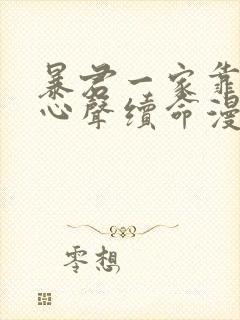 暴君一家靠
心聲續命漫
零想